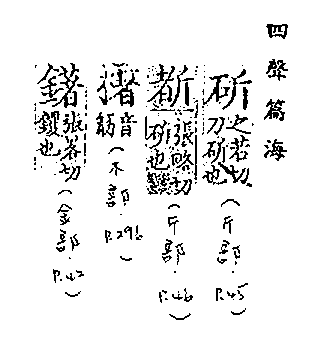 四聲篇海
斫之若切刀斫也(斤部.P.45)
斱張略切斫也(斤部.P.46)
楮音(木部.P.296)
鐯張畧切钁也(金部.P.42)